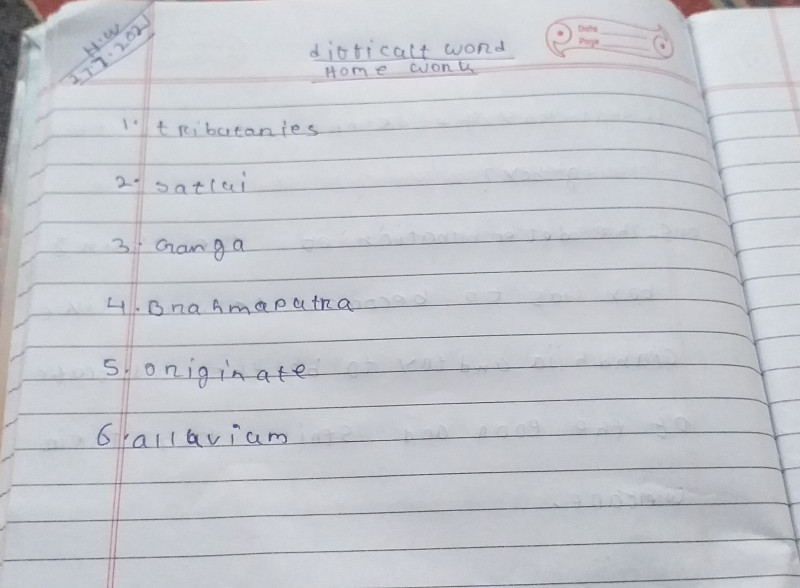 H.W
27.7.2021
difficalt word
Home work
Date
Page
1. tributaries
2. satlui
3. Ganga
4. Brahmaputra
5. originate
6. allaviam